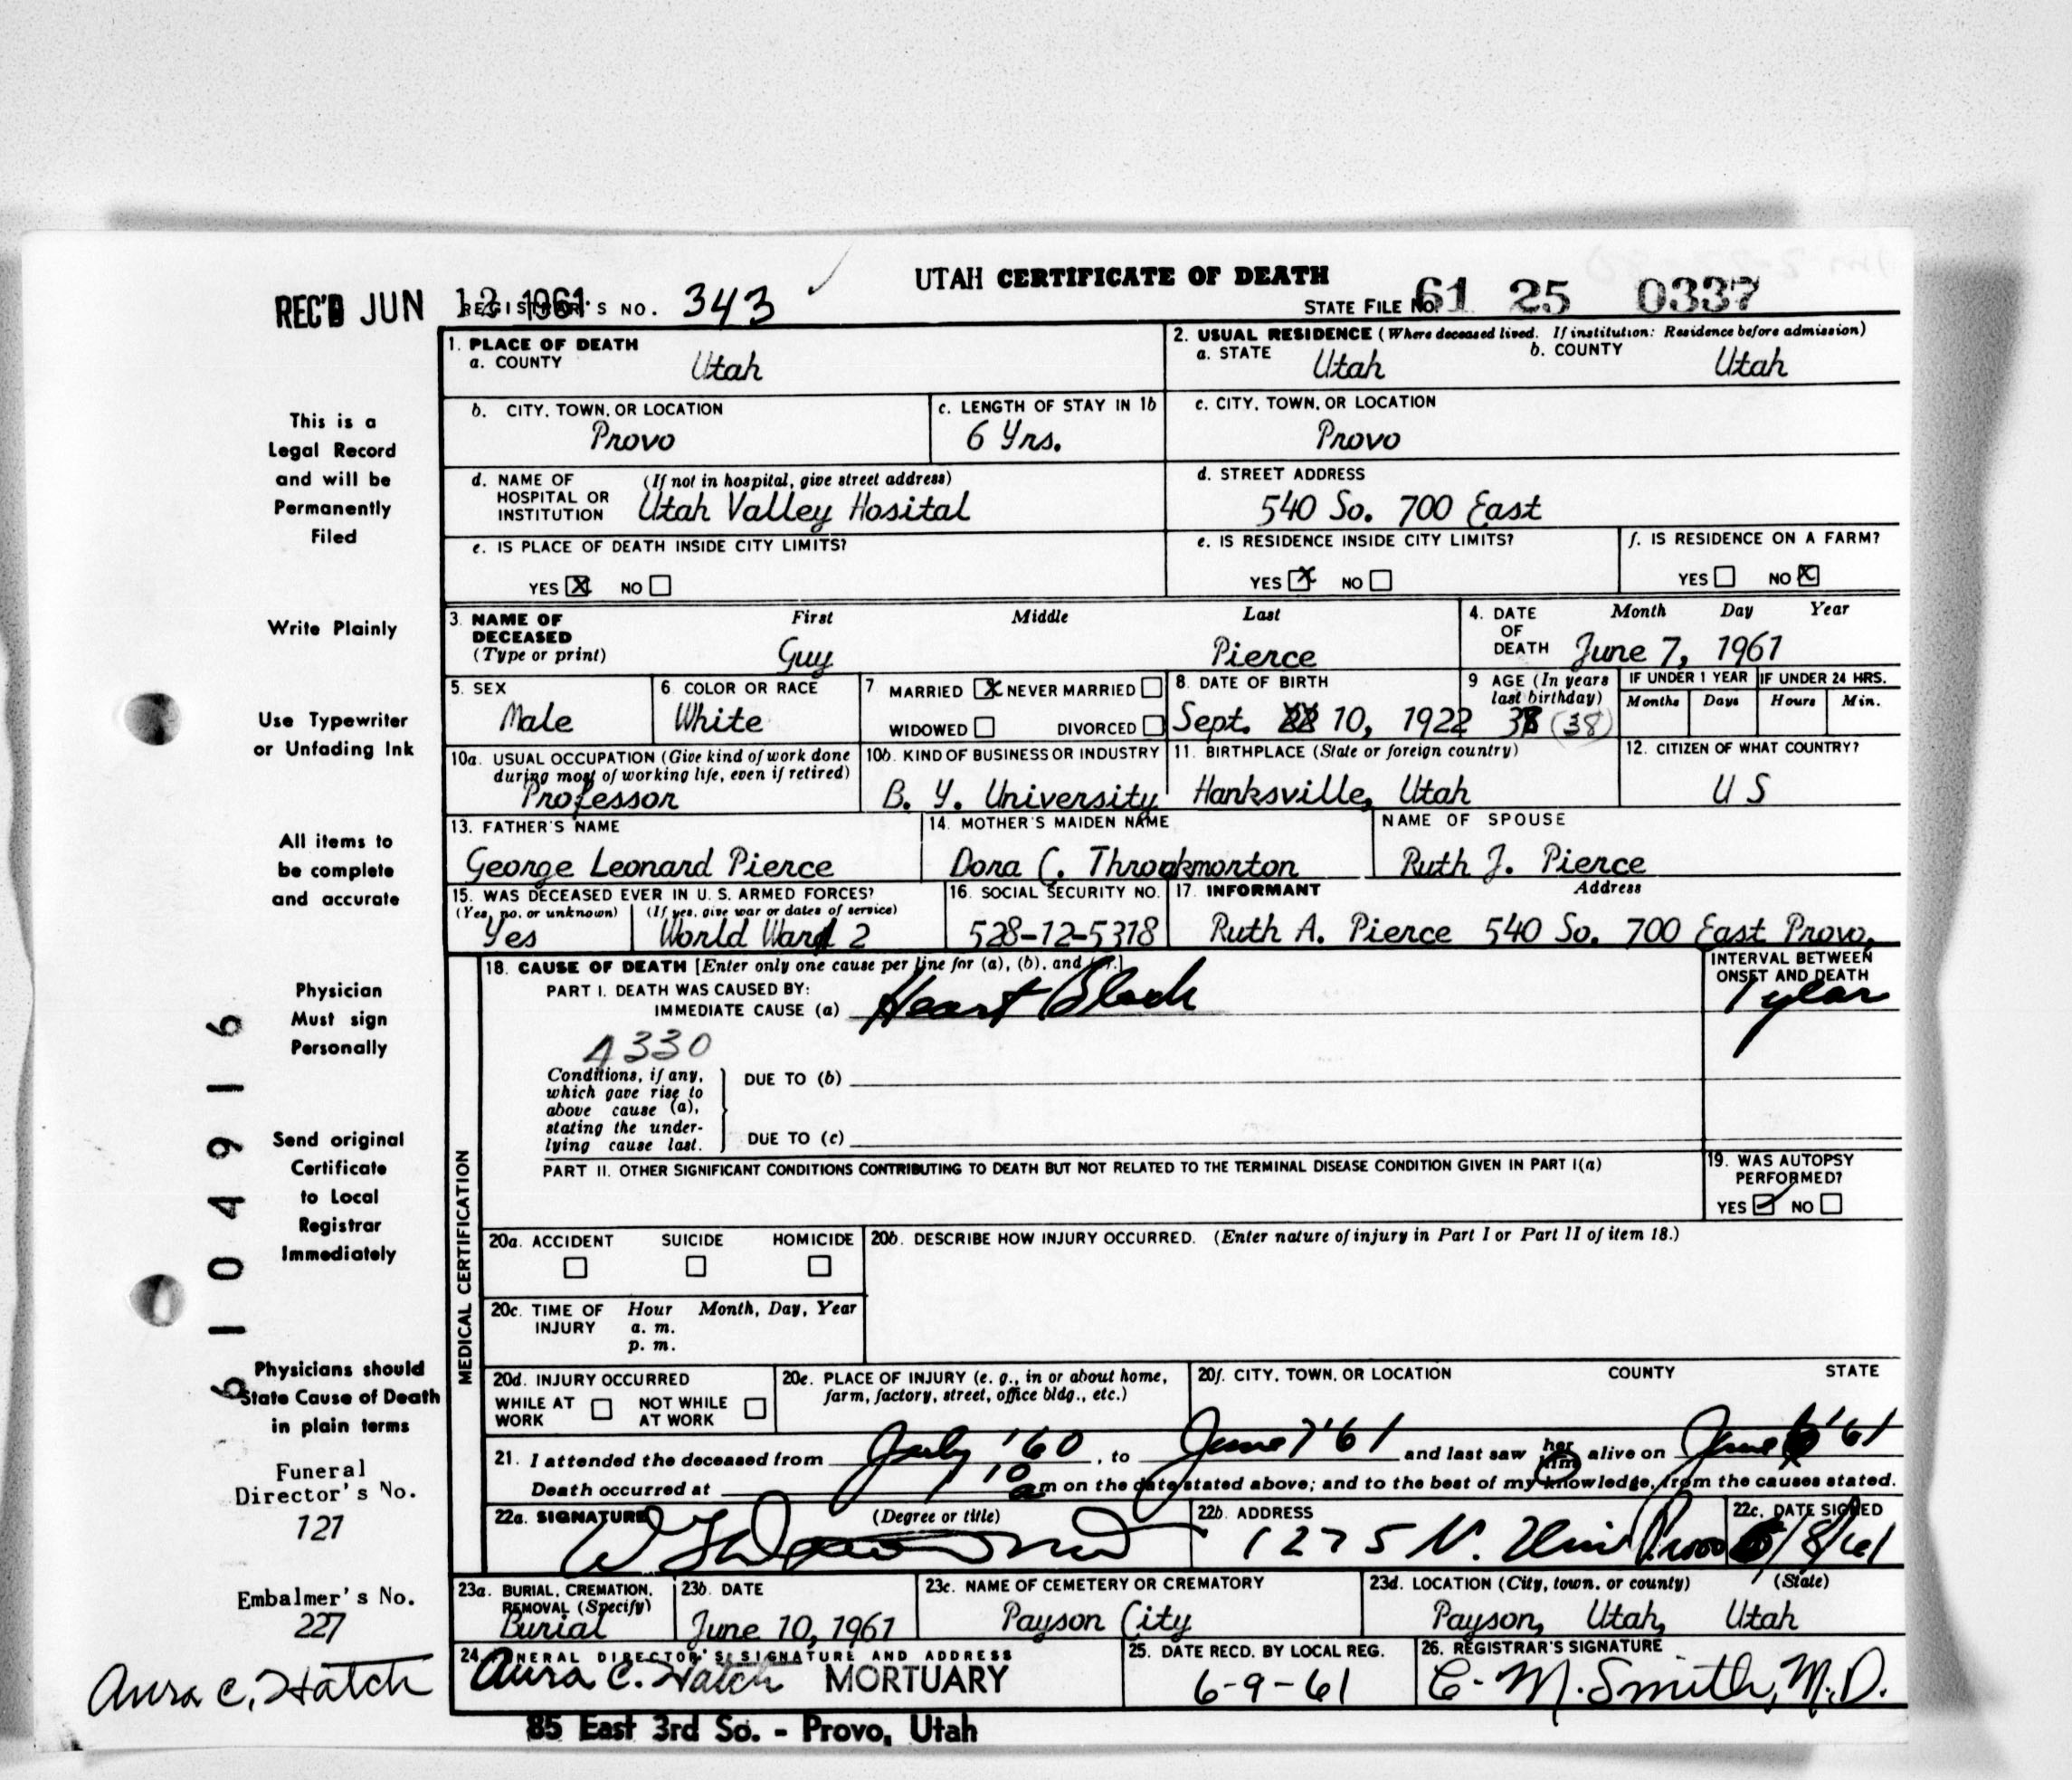 UTAH CERTIFICATE OF DEATH
REC'D JUN 12 1961
REGISTRAR'S NO. 343
STATE FILE NO. 61 25 0337
This is a
Legal Record
and will be
Permanently
Filed
Write Plainly
Use Typewriter
or Unfading Ink
All items to
be complete
and accurate
Physician
Must sign
Personally
Send original
Certificate
to Local
Registrar
Immediately
Physicians should
State Cause of Death
in plain terms
Funeral
Director's No.
121
Embalmer's No.
227
Aura C. Hatch
6104916
1. PLACE OF DEATH
a. COUNTY Utah
2. USUAL RESIDENCE (Where deceased lived. If institution: Residence before admission)
a. STATE Utah b. COUNTY Utah
b. CITY, TOWN, OR LOCATION
Provo
c. LENGTH OF STAY IN 1b
6 Yrs.
c. CITY, TOWN, OR LOCATION
Provo
d. NAME OF (If not in hospital, give street address)
HOSPITAL OR
INSTITUTION Utah Valley Hosital
d. STREET ADDRESS
540 So. 700 East
e. IS PLACE OF DEATH INSIDE CITY LIMITS?
YES X NO
e. IS RESIDENCE INSIDE CITY LIMITS?
YES X NO
f. IS RESIDENCE ON A FARM?
YES NO X
3. NAME OF DECEASED (Type or print)
First Middle Last
Guy Pierce
4. DATE OF DEATH Month Day Year
June 7, 1961
5. SEX
Male
6. COLOR OR RACE
White
7 MARRIED X NEVER MARRIED
WIDOWED DIVORCED
8. DATE OF BIRTH
Sept. 10, 1922
9 AGE (In years last birthday)
(38)
IF UNDER 1 YEAR
Months Days
IF UNDER 24 HRS.
Hours Min.
10a. USUAL OCCUPATION (Give kind of work done
during most of working life, even if retired)
Professor
10b. KIND OF BUSINESS OR INDUSTRY
B. Y. University
11. BIRTHPLACE (State or foreign country)
Hanksville, Utah
12. CITIZEN OF WHAT COUNTRY?
U S
13. FATHER'S NAME
George Leonard Pierce
14. MOTHER'S MAIDEN NAME
Dora C. Throckmorton
NAME OF SPOUSE
Ruth J. Pierce
15. WAS DECEASED EVER IN U. S. ARMED FORCES?
(Yes, no, or unknown) (If yes, give war or dates of service)
Yes World War 2
16. SOCIAL SECURITY NO.
528-12-5318
17. INFORMANT Address
Ruth A. Pierce 540 So. 700 East Provo,
MEDICAL CERTIFICATION
18. CAUSE OF DEATH [Enter only one cause per line for (a), (b), and (c).]
PART I. DEATH WAS CAUSED BY:
IMMEDIATE CAUSE (a) Heart Block
INTERVAL BETWEEN
ONSET AND DEATH
1 year
4330
Conditions, if any,
which gave rise to
above cause (a),
stating the under-
lying cause last.
DUE TO (b)
DUE TO (c)
PART II. OTHER SIGNIFICANT CONDITIONS CONTRIBUTING TO DEATH BUT NOT RELATED TO THE TERMINAL DISEASE CONDITION GIVEN IN PART I(a)
19. WAS AUTOPSY
PERFORMED?
YES NO
20a. ACCIDENT SUICIDE HOMICIDE
20b. DESCRIBE HOW INJURY OCCURRED. (Enter nature of injury in Part I or Part II of item 18.)
20c. TIME OF INJURY Hour Month, Day, Year
a. m.
p. m.
20d. INJURY OCCURRED
WHILE AT WORK NOT WHILE AT WORK
20e. PLACE OF INJURY (e. g., in or about home,
farm, factory, street, office bldg., etc.)
20f. CITY, TOWN, OR LOCATION COUNTY STATE
21. I attended the deceased from July '60, to June 7 '61 and last saw her him alive on June 6 '61
Death occurred at 10 am on the date stated above; and to the best of my knowledge, from the causes stated.
22a. SIGNATURE (Degree or title)
22b. ADDRESS
1275 N. Univ Provo
22c. DATE SIGNED
6/8/61
23a. BURIAL, CREMATION,
REMOVAL (Specify)
Burial
23b. DATE
June 10, 1961
23c. NAME OF CEMETERY OR CREMATORY
Payson City
23d. LOCATION (City, town, or county) (State)
Payson, Utah, Utah
24. FUNERAL DIRECTOR'S SIGNATURE AND ADDRESS
Aura C. Hatch MORTUARY
85 East 3rd So. - Provo, Utah
25. DATE RECD. BY LOCAL REG.
6-9-61
26. REGISTRAR'S SIGNATURE
C. M. Smith, M.D.